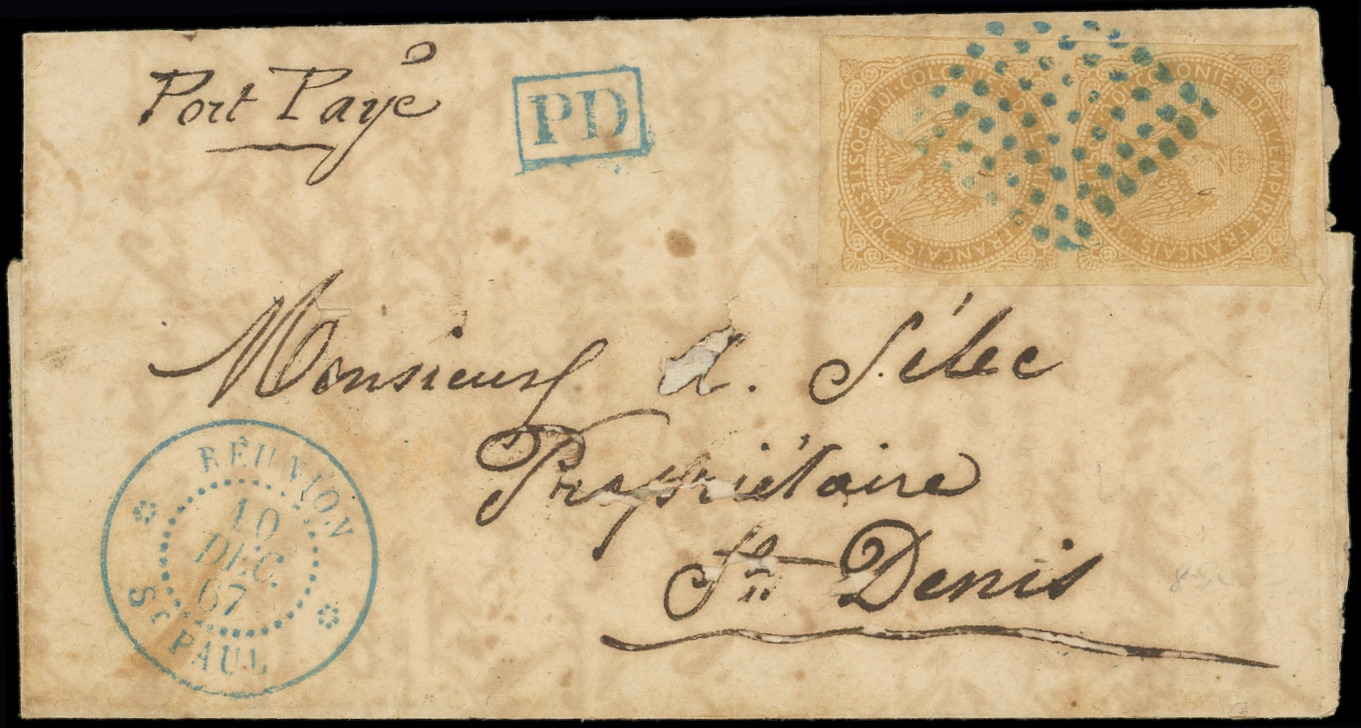 Port Payé
PD
COLONIES DE L'EMPIRE FRANÇAIS · 10 C. POSTES · 10 C.
COLONIES DE L'EMPIRE FRANÇAIS
Monsieur A. Sélec
Propriétaire
St. Denis
RÉUNION
10
DÉC.
67
St PAUL